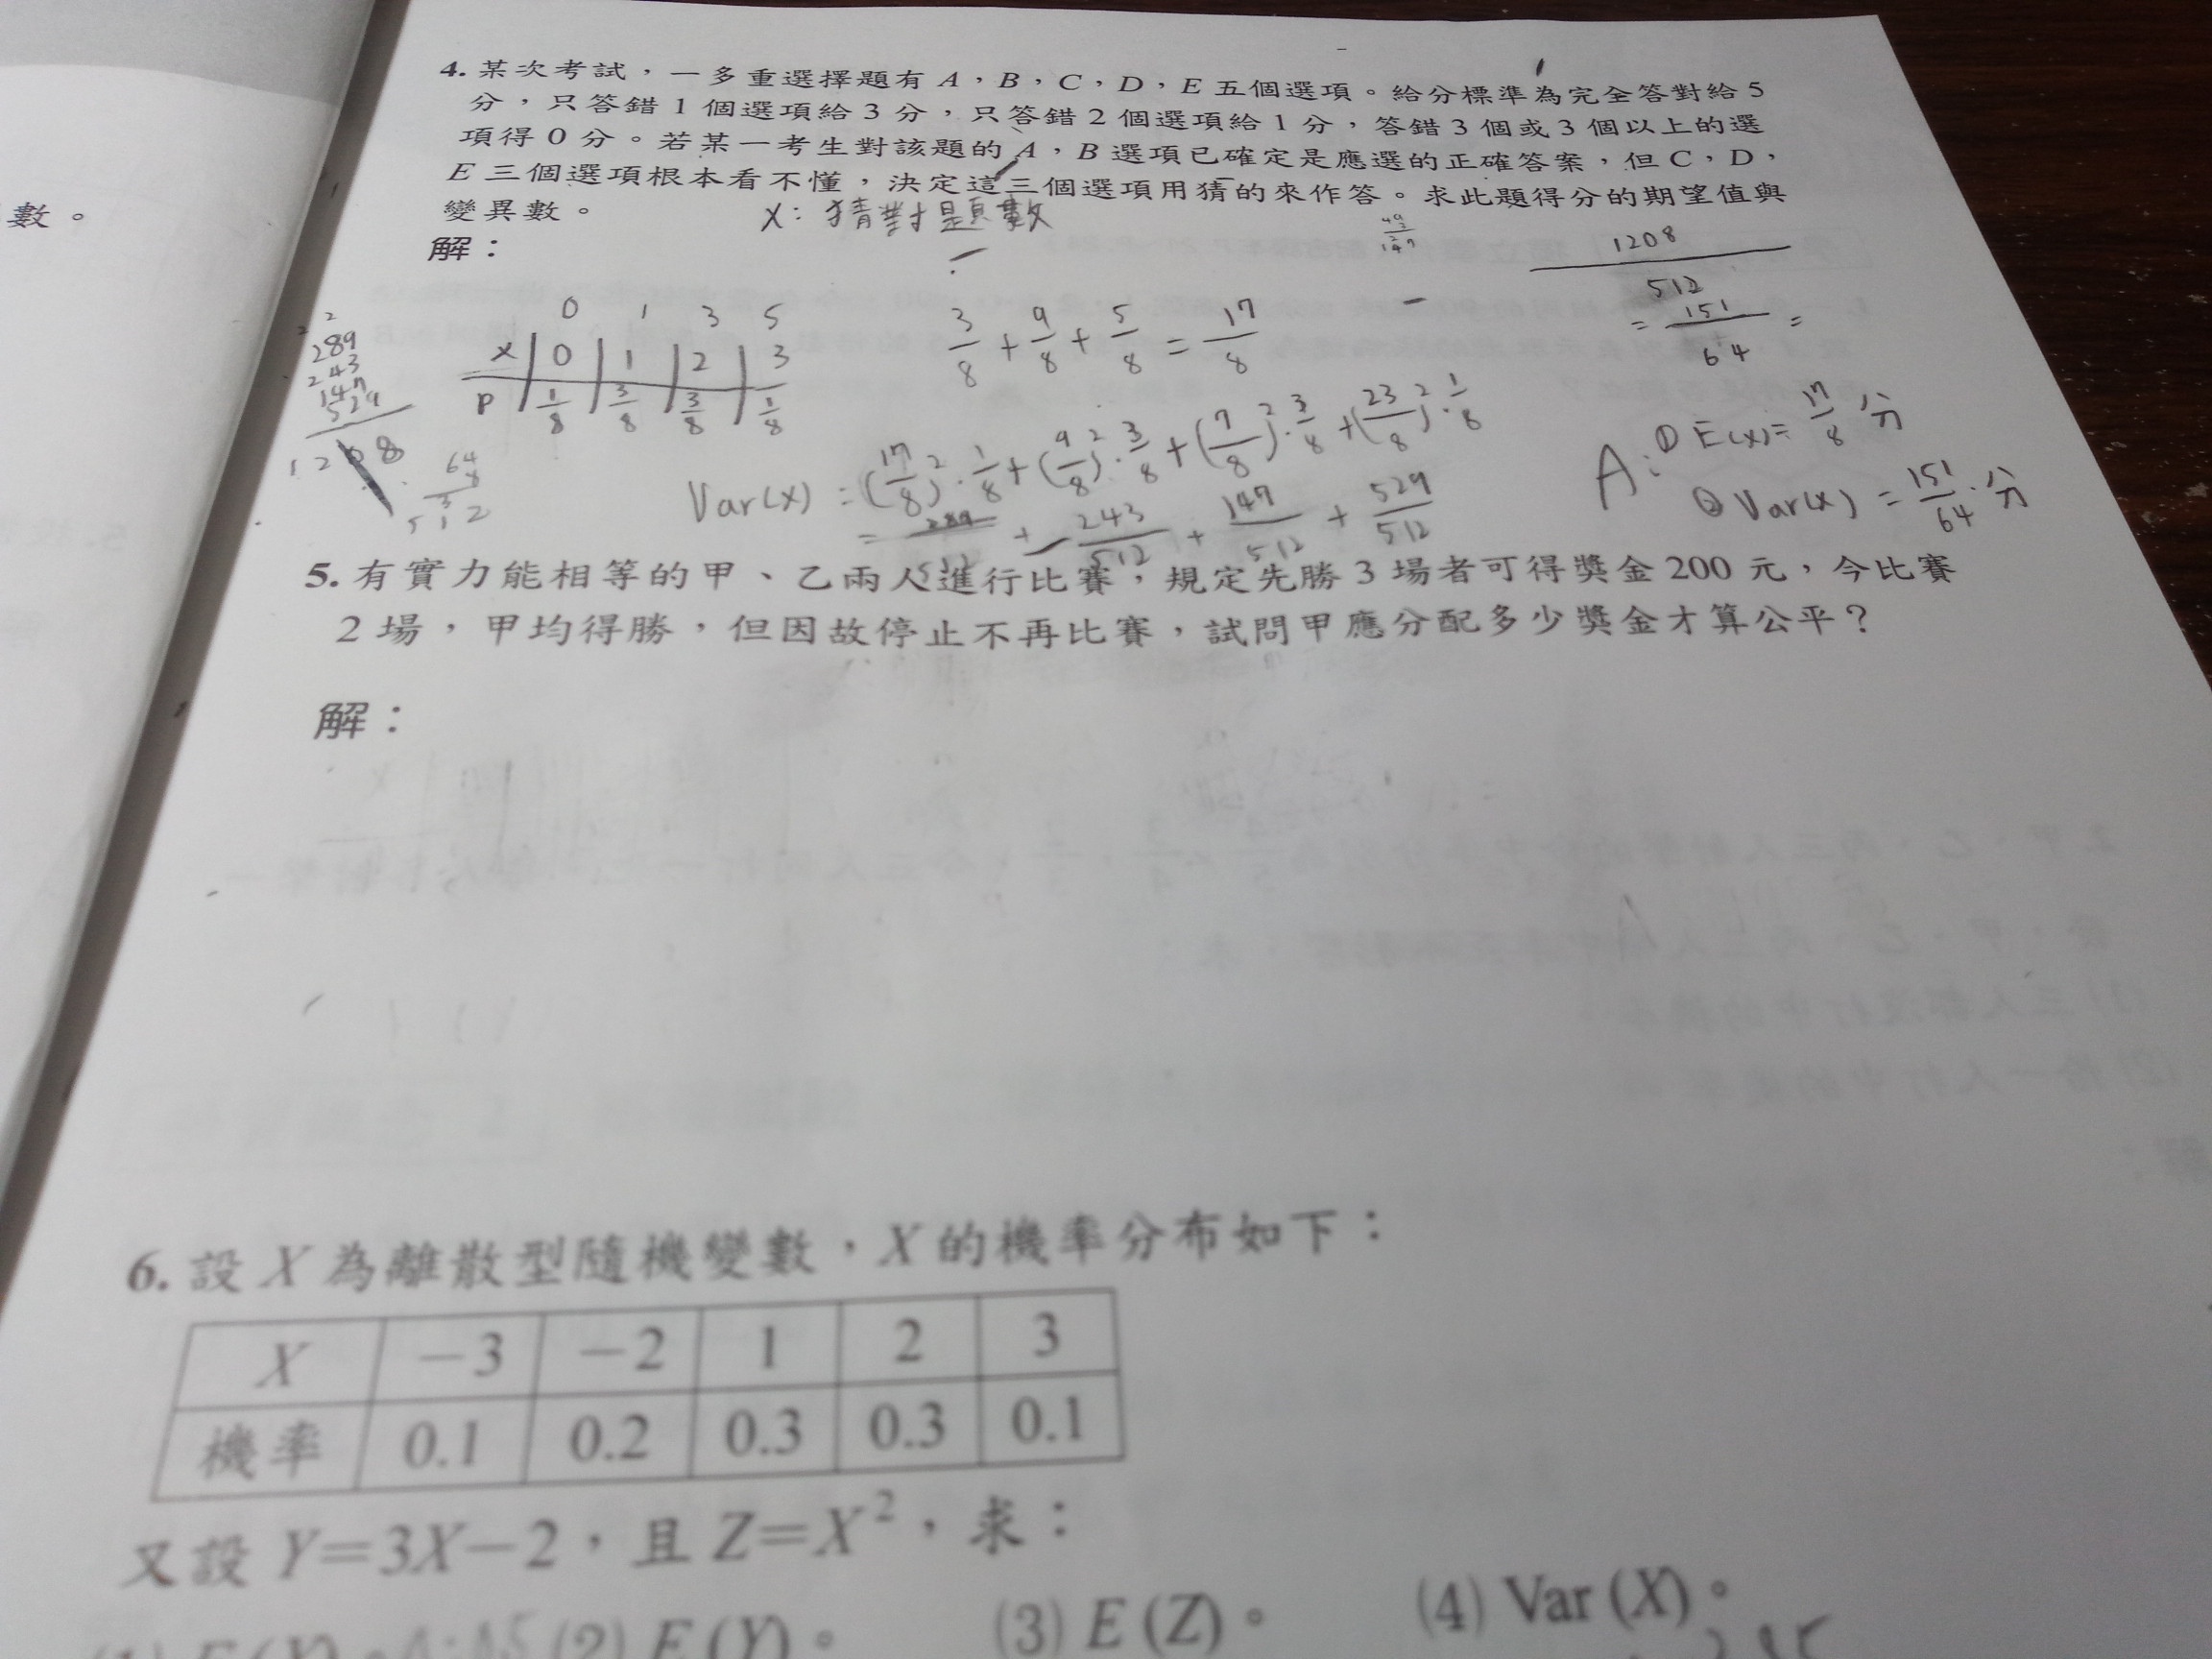 數。
4. 某次考試，一多重選擇題有 A，B，C，D，E 五個選項。給分標準為完全答對給 5
分，只答錯 1 個選項給 3 分，只答錯 2 個選項給 1 分，答錯 3 個或 3 個以上的選
項得 0 分。若某一考生對該題的 A，B 選項已確定是應選的正確答案，但 C，D，
E 三個選項根本看不懂，決定這三個選項用猜的來作答。求此題得分的期望值與
變異數。
X: 猜對題數
解：
49
3
147
1208/512
= 151/64 =
0 1 3 5
X 0 1 2 3
P 1/8 3/8 3/8 1/8
3/8 + 9/8 + 5/8 = 17/8
289
243
147
529
1208
64
8
512
Var(X) = (17/8)² · 1/8 + (9/8)² · 3/8 + (7/8)² · 3/8 + (23/8)² · 1/8
= 289/512 + 243/512 + 147/512 + 529/512
A: ① E(X) = 17/8 分
② Var(X) = 151/64 分
5. 有實力能相等的甲、乙兩人進行比賽，規定先勝 3 場者可得獎金 200 元，今比賽
2 場，甲均得勝，但因故停止不再比賽，試問甲應分配多少獎金才算公平？
解：
6. 設 X 為離散型隨機變數，X 的機率分布如下：
X −3 −2 1 2 3
機率 0.1 0.2 0.3 0.3 0.1
又設 Y=3X−2，且 Z=X²，求：
(1) E(X)。 (2) E(Y)。 (3) E(Z)。 (4) Var(X)。